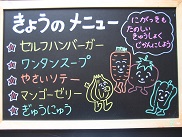 きょうのメニュー
セルフハンバーガー
ワンタンスープ
やさいソテー
マンゴーゼリー
ぎゅうにゅう
にがっきも
たのしい
きゅうしょく
じかんにしよう